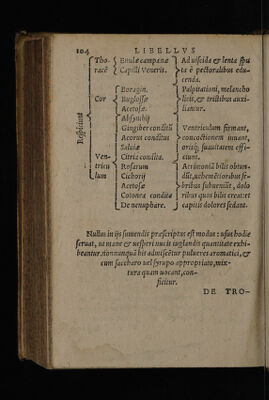 104 LIBELLVS
Respiciunt
Tho- Enulæ campanæ Ad viscida & lenta spu
racẽ Capilli Veneris. ta è pectoralibus edu-
cenda.
Boragin. Palpitationi, melancho
Cor Buglossæ licis, & tristibus auxi-
Acetosæ. liantur.
Absynthij
Gingiber conditũ Ventriculum firmant,
Acorus conditus concoctionem iuuant,
Saluiæ orisq́; suauitatem effi-
Ven- Citria condita. ciunt.
tricu Rosarum Acrimoniã bilis obtun-
lum Cichorij dũt, acutioribus fe-
Acetosæ bribus subueniũt, dolo
Cotonea condita ribus quos bilis creat et
De nenuphare. capitis dolores sedant.
Nullus in ijs sumendis præscriptus est modus: usus hodie
seruat, ut mane & uesperi nucis iuglandis quantitate exhi-
beantur. nonnunquã his admiscẽtur pulueres aromatici, &
cum saccharo uel syrupo appropriato, mix-
tura quam uocant, con-
ficitur.
DE TRO-